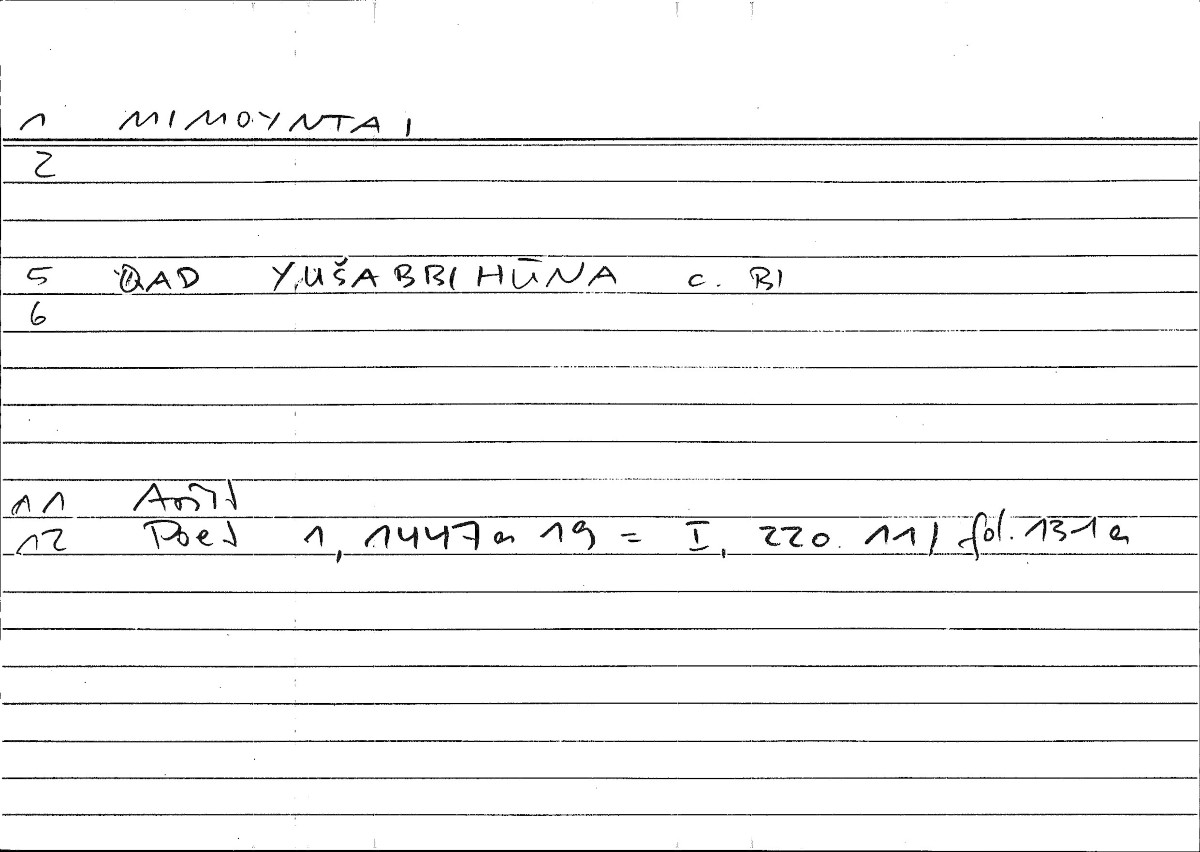 1 ΜΙΜΟΥΝΤΑΙ
2
5 QAD YUŠABBIHŪNA c. BI
6
11 Arist
12 Poet 1, 1447a 19 = I, 220. 11 / fol. 131a